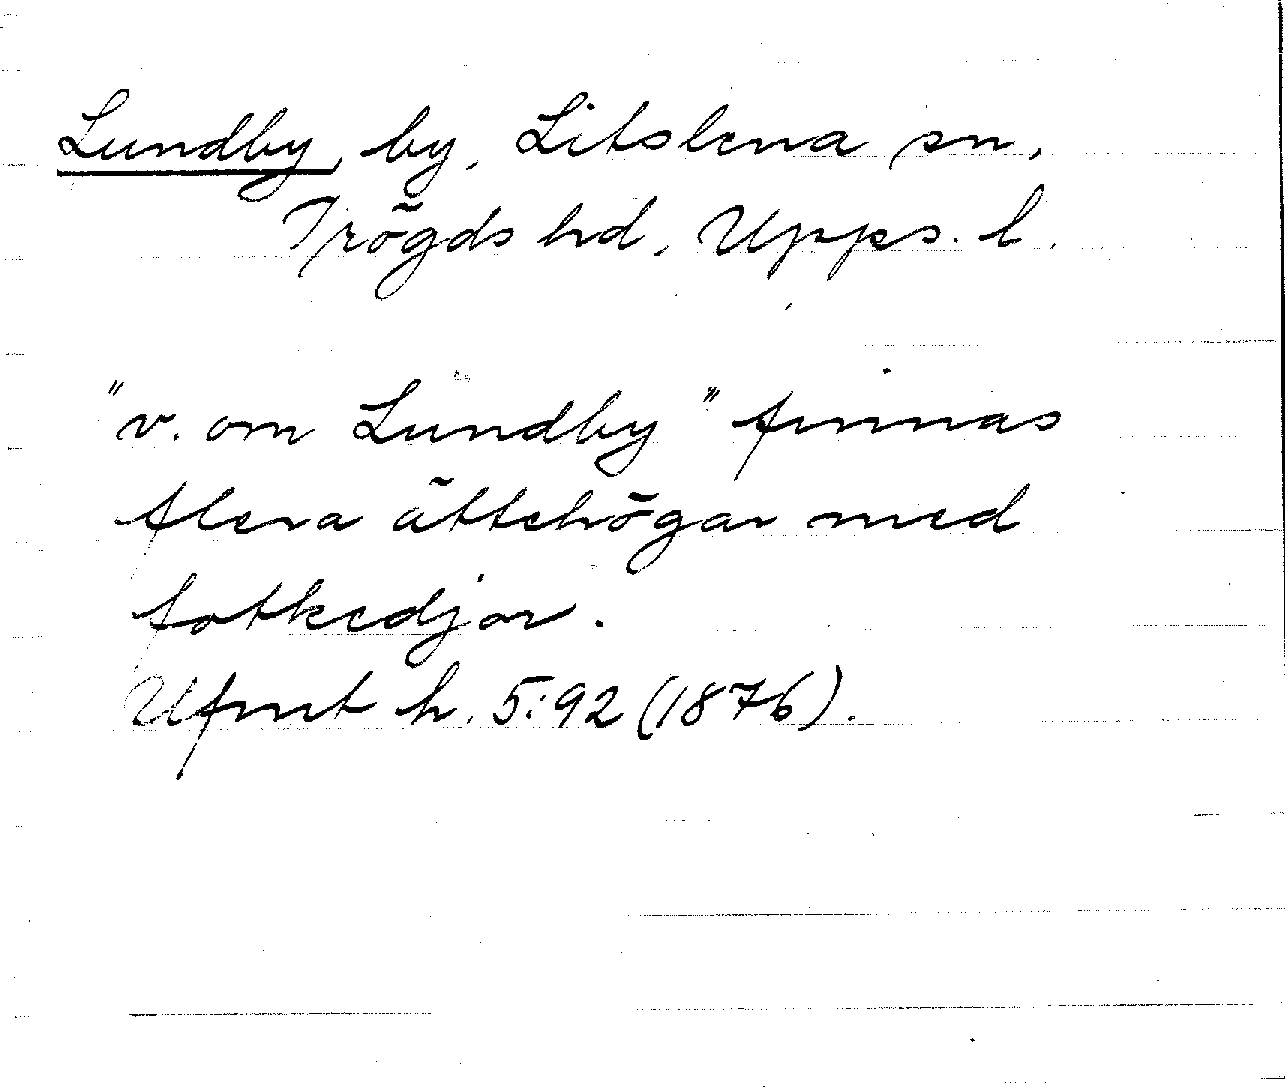 Lundby, by, Litslena sn,
Trögds hd, Upps. l.
"v. om Lundby" finnas
flera ättehögar med
fotkedjor.
Ufmt h. 5:92 (1876).